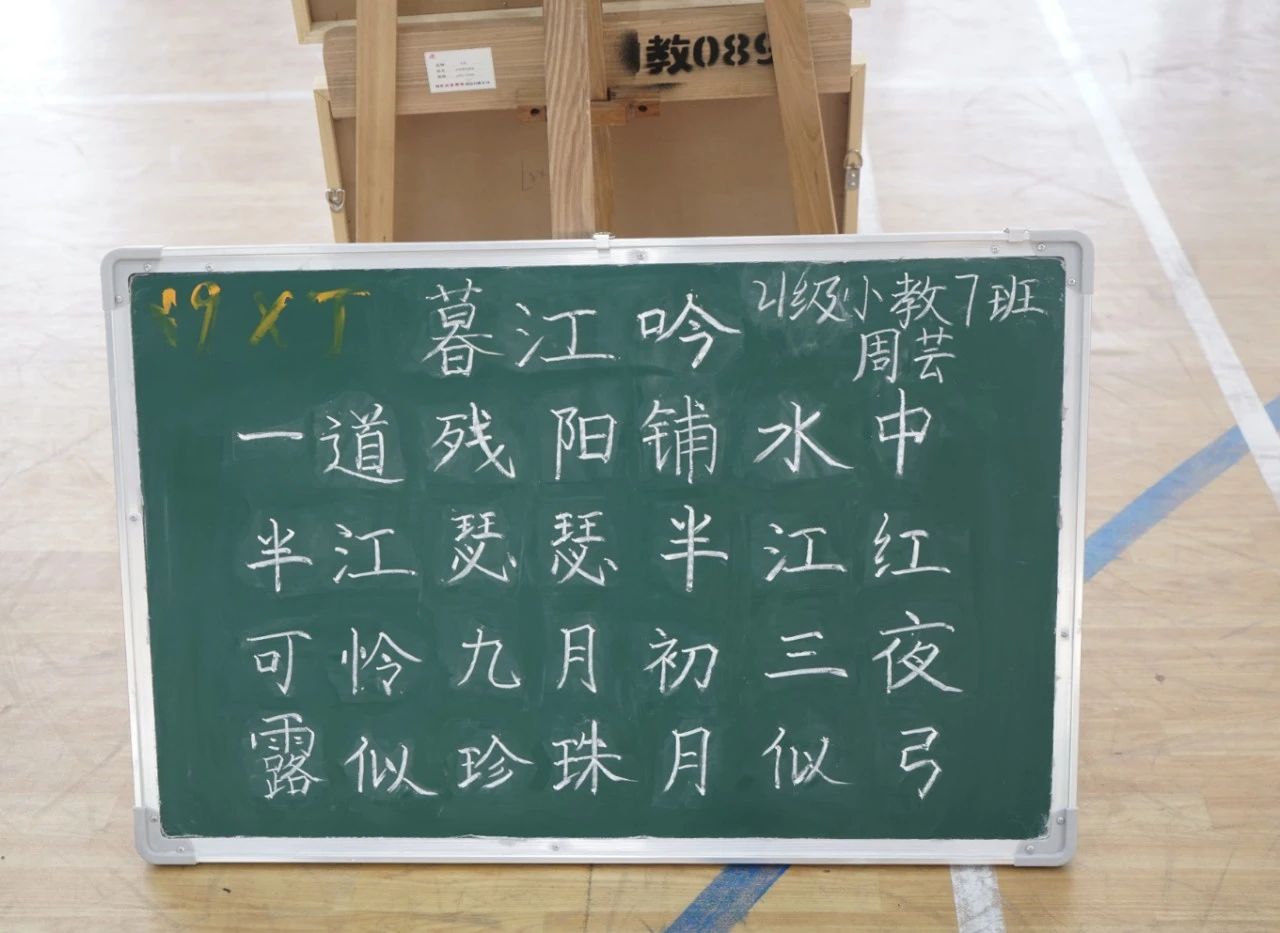 教089
89 X T
暮江吟
21级小教7班
周芸
一道残阳铺水中
半江瑟瑟半江红
可怜九月初三夜
露似珍珠月似弓